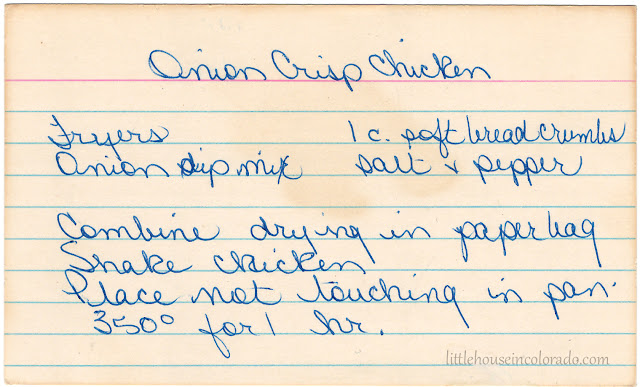 Onion Crisp Chicken
Fryers 1 c. soft bread crumbs
Onion dip mix salt & pepper
Combine drying in paper bag
Shake chicken
Place not touching in pan.
350° for 1 hr.
littlehouseincolorado.com